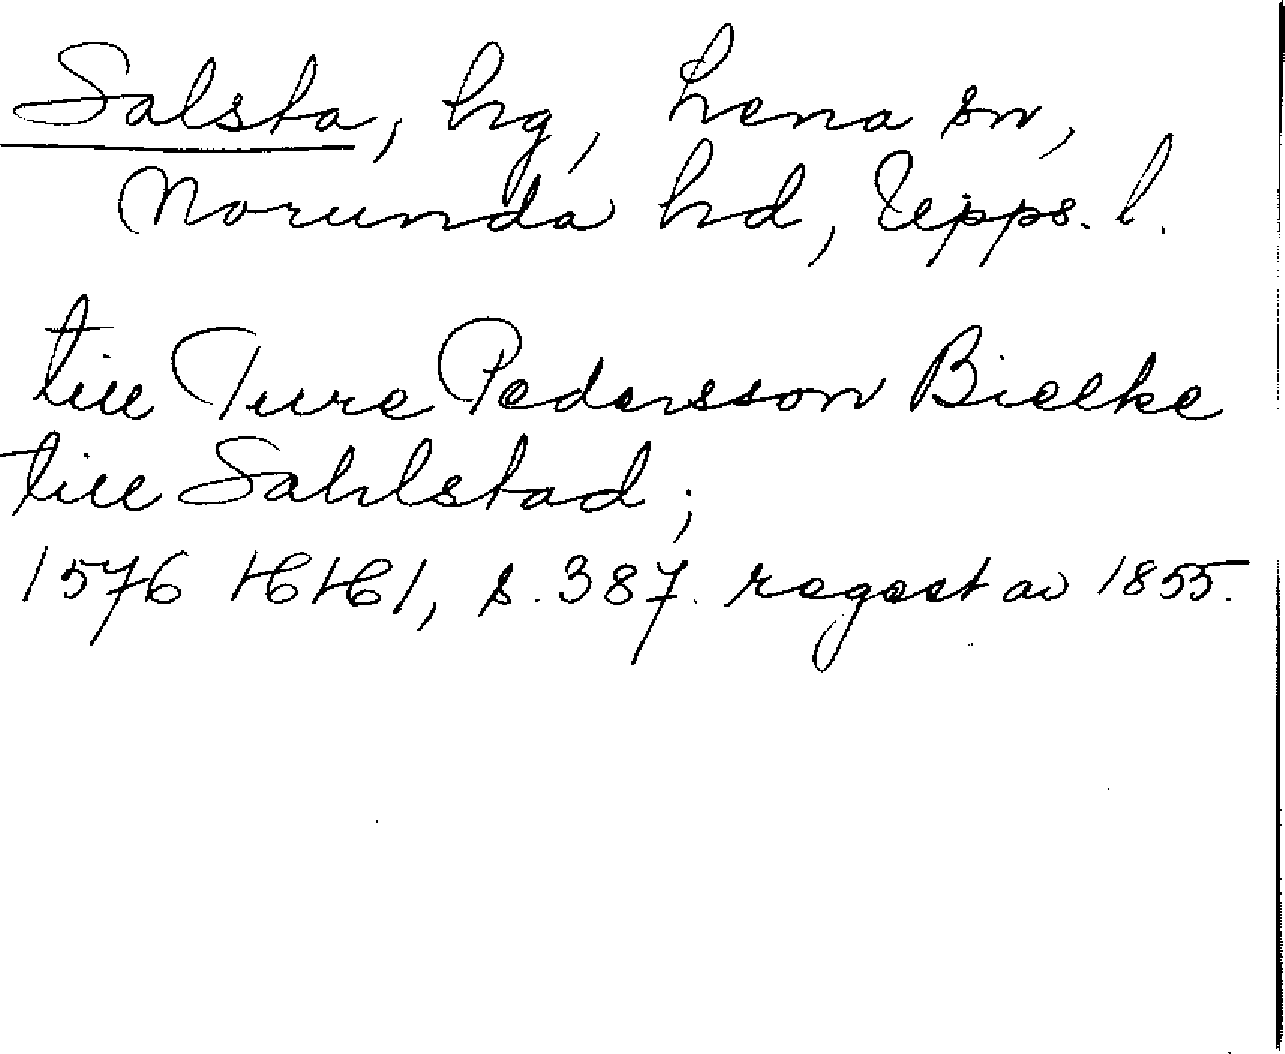 Salsta, hg, Lena sn,
Norunda hd, Upps. l.
till Ture Pedersson Bielke
till Sahlstad;
1576 HH1, s. 387. regest av 1855.